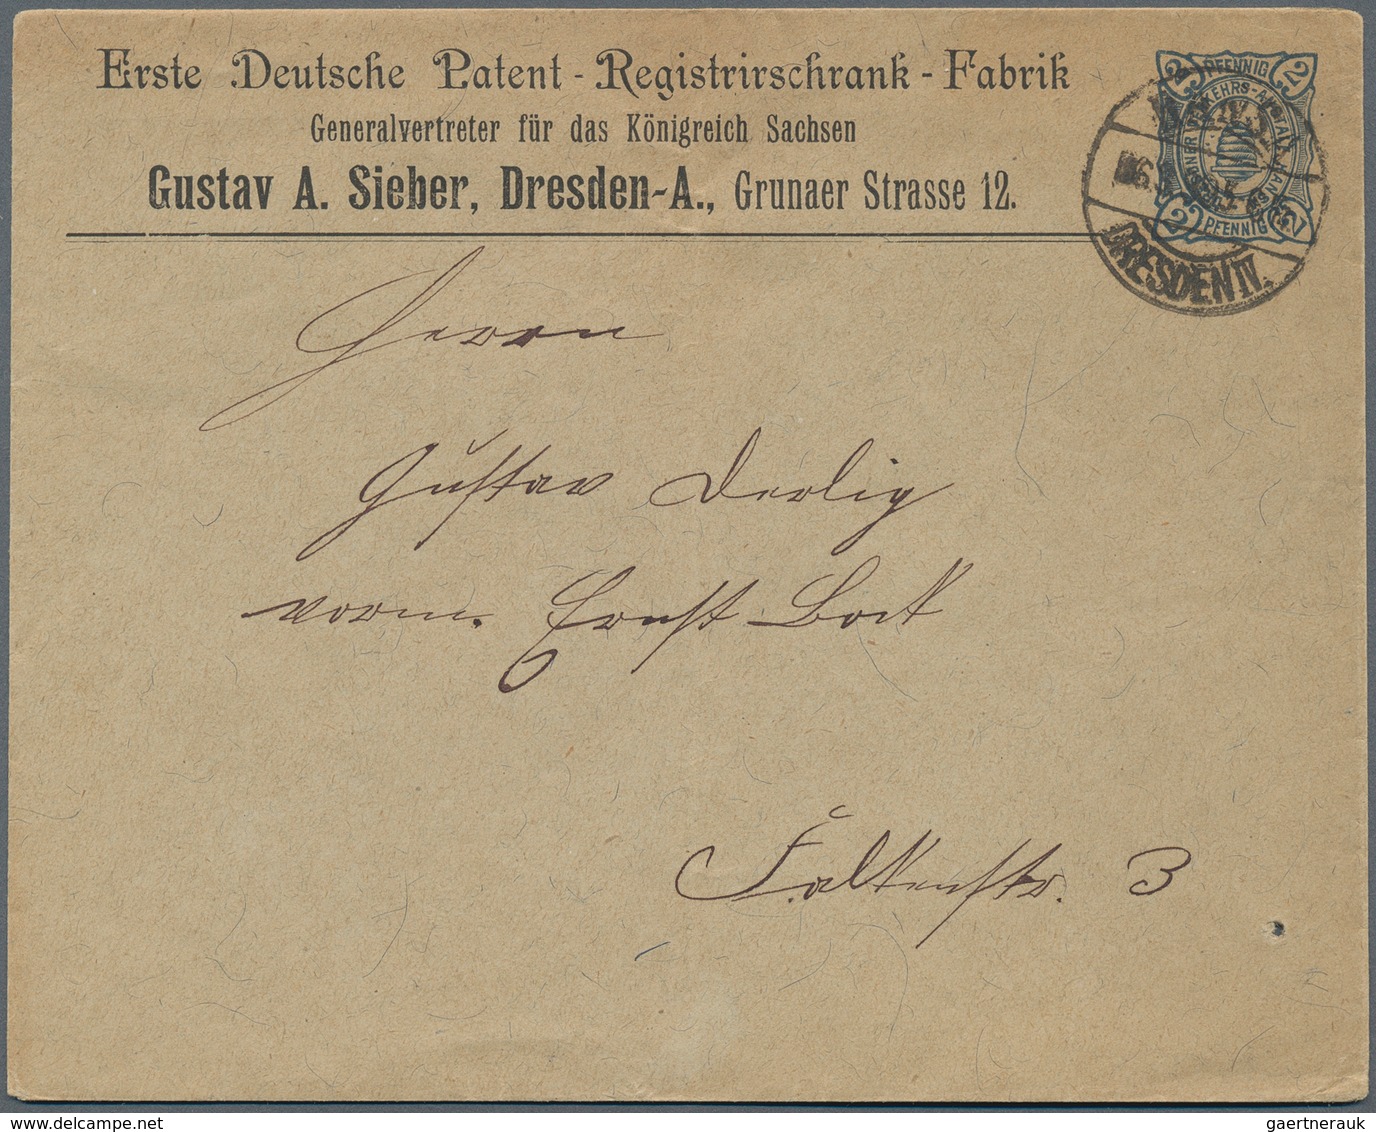 Erste Deutsche Patent-Registrirschrank-Fabrik
Generalvertreter für das Königreich Sachsen
Gustav A. Sieber, Dresden-A., Grunaer Strasse 12.
2 PFENNIG 2
VERKEHRS-ANSTALT HANSA
2 PFENNIG 2
DRESDEN IV.
Herrn
Gustav Derlig
vorm. Ernst Bock
Falkenstr. 3
gaertnerauk